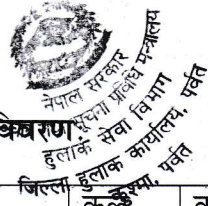 नेपाल सरकार
सूचना प्रविधि मन्त्रालय
हुलाक सेवा विभाग
जिल्ला हुलाक कार्यालय, पर्वत
कुश्मा, पर्वत